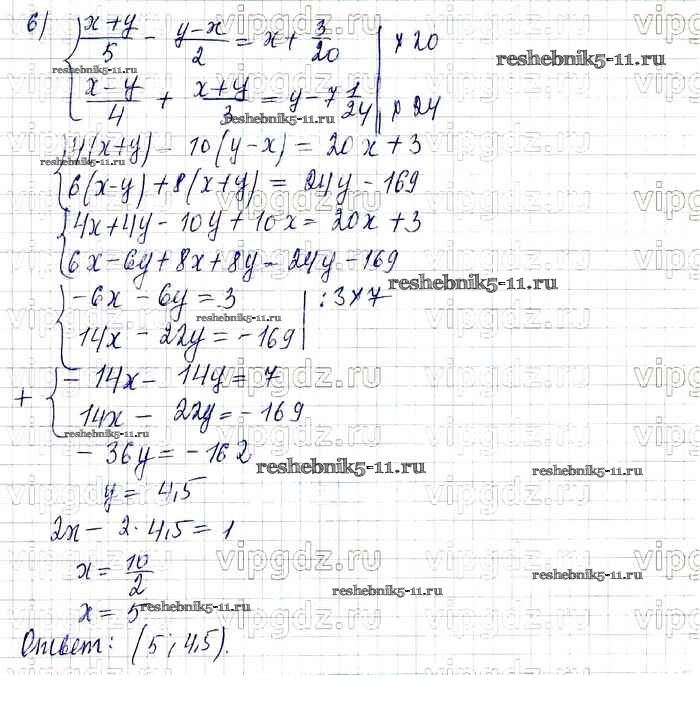 б) { (x+y)/5 - (y-x)/2 = x + 3/20 | × 20
(x-y)/4 + (x+y)/3 = y - 7 1/24 | × 24
{ 4(x+y) - 10(y-x) = 20x + 3
6(x-y) + 8(x+y) = 24y - 169
{ 4x+4y - 10y + 10x = 20x + 3
6x - 6y + 8x + 8y = 24y - 169
{ -6x - 6y = 3 | :3×7
14x - 22y = -169
+ { - 14x - 14y = 7
14x - 22y = -169
- 36y = -162
y = 4,5
2x - 2·4,5 = 1
x = 10/2
x = 5
Ответ: (5; 4,5).
vipgdz.ru
reshebnik5-11.ru